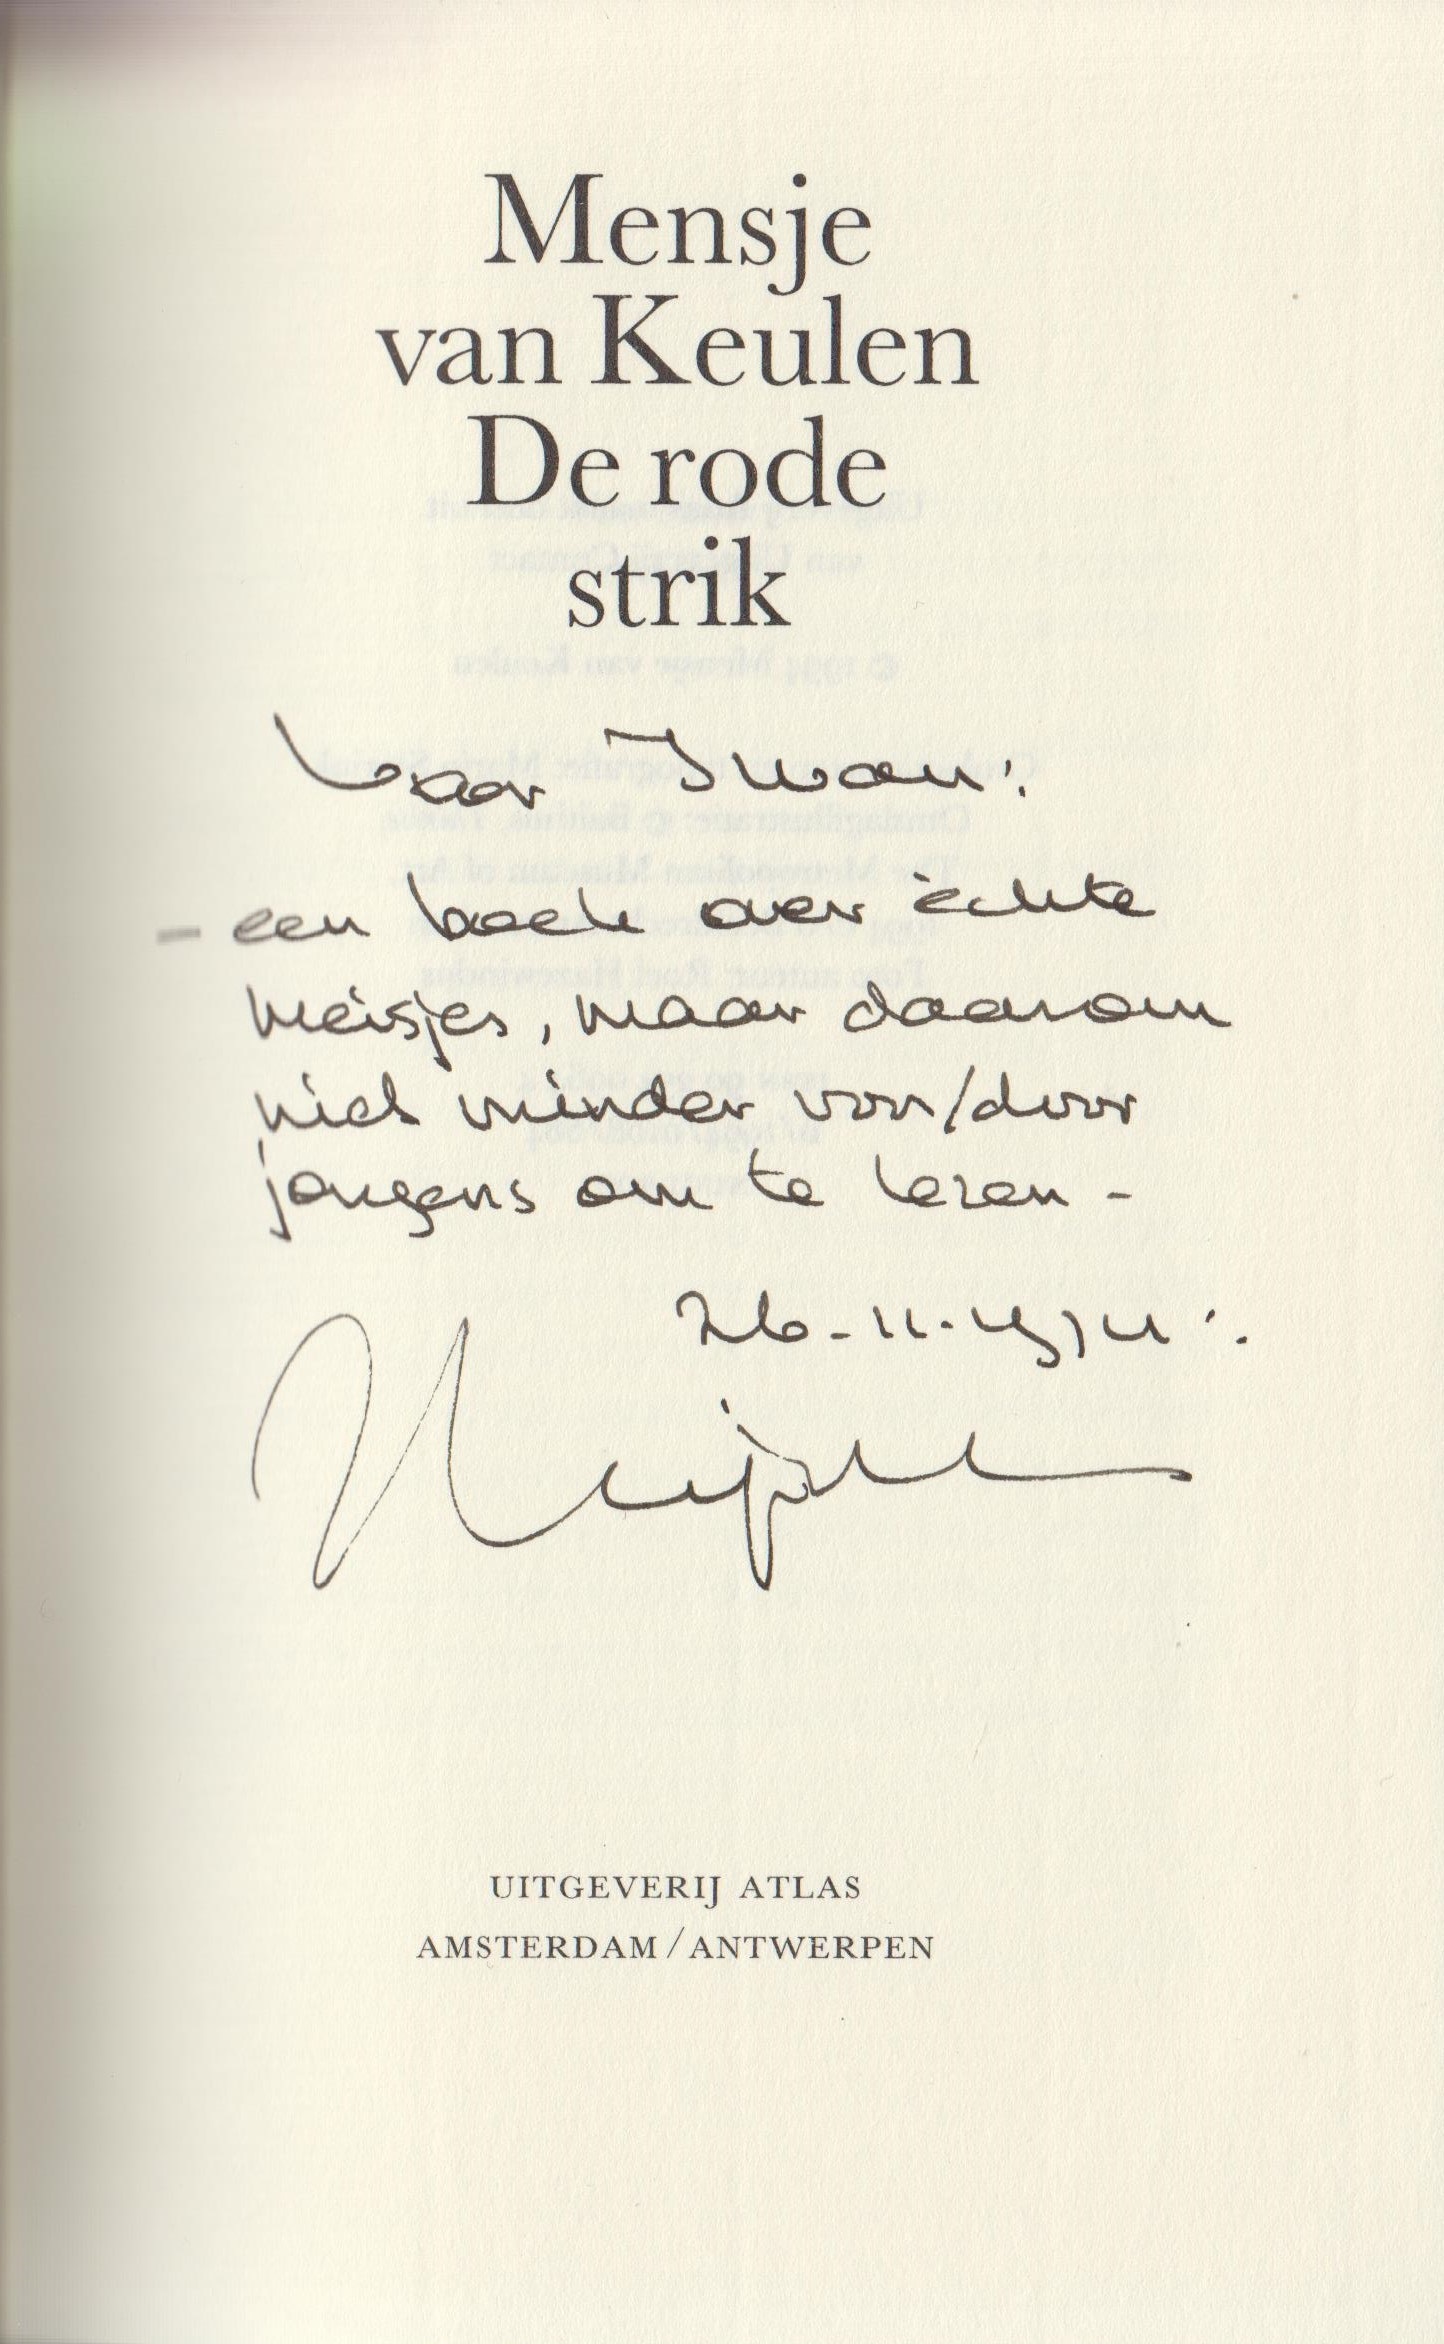 Mensje
van Keulen
De rode
strik
Voor Iwan:
- een boek over échte
meisjes, maar daarom
niet minder voor/door
jongens om te lezen -
26-11-
UITGEVERIJ ATLAS
AMSTERDAM/ANTWERPEN